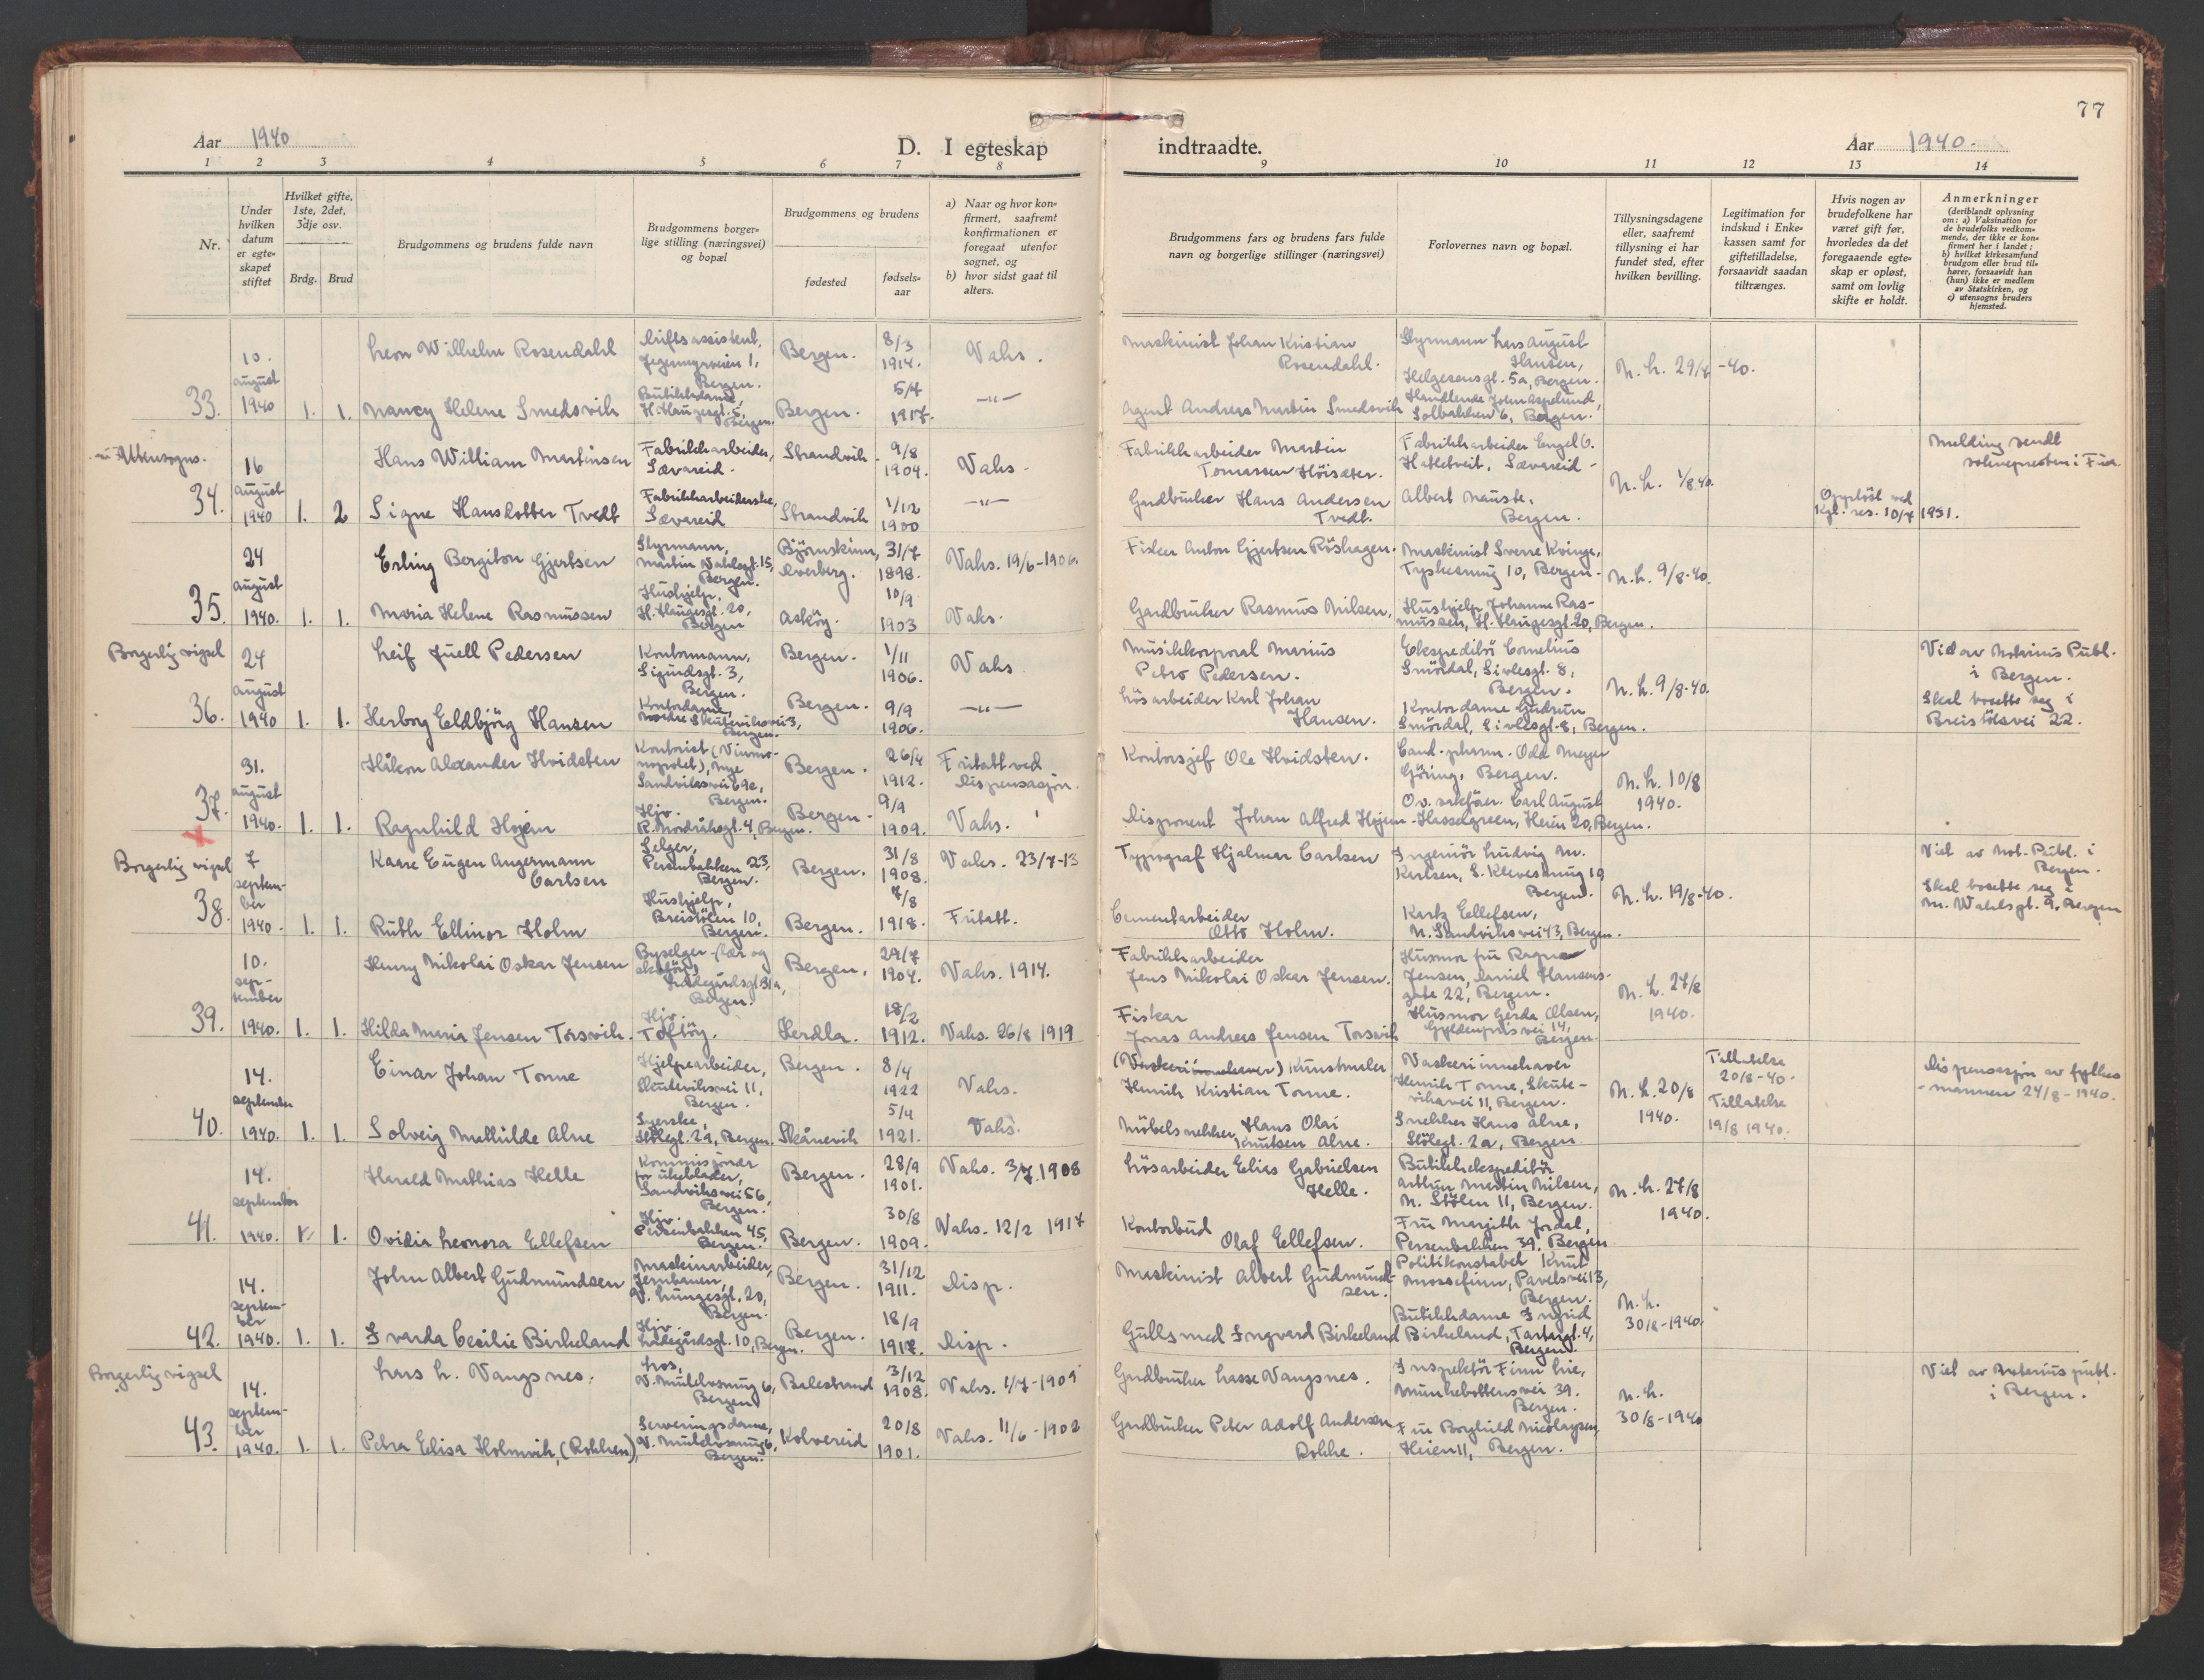 77
Aar 1940
D. I egteskap
indtraadte.
Aar 1940.
1 2 3 4 5 6 7 8
9 10 11 12 13 14
Nr.
Under hvilken datum er egteskapet stiftet
Hvilket gifte, 1ste, 2det, 3dje osv.
Brdg. Brud
Brudgommens og brudens fulde navn
Brudgommens borgerlige stilling (næringsvei) og bopæl
Brudgommens og brudens
fødested
fødselsaar
a) Naar og hvor konfirmert, saafremt konfirmationen er foregaat utenfor sognet, og
b) hvor sidst gaat til alters.
Brudgommens fars og brudens fars fulde navn og borgerlige stillinger (næringsvei)
Forlovernes navn og bopæl.
Tillysningsdagene eller, saafremt tillysning ei har fundet sted, efter hvilken bevilling.
Legitimation for indskud i Enkekassen samt for giftetilladelse, forsaavidt saadan tiltrænges.
Hvis nogen av brudefolkene har været gift før, hvorledes da det foregaaende egteskap er opløst, samt om lovlig skifte er holdt.
Anmerkninger
(deriblandt oplysning om: a) Vaksination for de brudefolks vedkommende, der ikke er konfirmert her i landet; b) hvilket kirkesamfund brudgom eller brud tilhører, forsaavidt han (hun) ikke er medlem av Statskirken, og c) utensogns bruders hjemsted.
33.
10. august 1940
1. 1.
Leon Wilhelm Rosendahl
Driftsassistent,
1, Bergen.
Bergen.
8/3 1914.
Vaks.
Maskinist Johan Kristian Rosendahl.
Styrmann Lars August Hansen,
Helgesensgt. 5a, Bergen.
N. h. 29/7 -40.
Nancy Helene Smedsvik
Butikkdame,
H. Haugesgt. 5, Bergen.
Bergen.
5/7 1917.
-"-
Agent Andreas Martin Smedsvik
Handlende John Asplund,
Solbakken 6, Bergen.
Utensogns.
34.
16 august 1940
1. 2
Hans William Martinsen
Fabrikkarbeider,
Sævareid.
Strandvik
9/8 1904.
Vaks.
Fabrikkarbeider Martin
Tomassen Höisæter.
Fabrikkarbeider Engel O.
Hatletveit, Sævareid
N. h. 1/8 40.
Melding sendt
soknepresten i Fusa
Signe Hansdotter Tvedt
Fabrikkarbeiderske,
Sævareid
Strandvik
1/12 1900
-"-
Gardbruker Hans Andersen
Tvedt.
Albert Nauste,
Bergen.
Oppløst ved
Kgl. res. 10/7 1931.
35.
24 august 1940.
1. 1.
Erling Bergiton Gjertsen
Styrmann,
Martin Vahlsgt. 15,
Bergen.
Björnskinn,
Överberg.
31/7 1898.
Vaks. 19/6-1906.
Fisker Anton Gjertsen Röshagen.
Maskinist Sverre Kvinge,
Tyskesmug 10, Bergen.
N. h. 9/8-40.
Maria Helene Rasmussen
Hushjelp,
H. Haugesgt. 20,
Bergen
Asköy.
10/9 1903
Vaks.
Gardbruker Rasmus Nilsen,
Hushjelp Johanne Ras-
mussen, H. Haugesgt. 20, Bergen.
Borgerlig vigsel
36.
24 august 1940
1. 1.
Leif Juell Pedersen
Kontormann,
Sigurdsgt. 3,
Bergen.
Bergen.
1/11 1906.
Vaks
Musikkorporal Marius
Petro Pedersen.
Ekspeditör Cornelius
Smördal, Sivlesgt. 8,
Bergen.
N. h. 9/8-40.
Vid av Notarius Publ.
i Bergen.
Herborg Eldbjörg Hansen
Kontordame,
Nordre Skuteviksvei 3,
Bergen.
Bergen.
9/9 1906.
-"-
Lösarbeider Karl Johan
Hansen.
Kontordame Gudrun
Smördal, Sivlesgt. 8, Bergen.
Skal bosette seg i
Breistölsvei 22.
37.
31. august 1940.
1. 1.
Håkon Alexander Hvidsten
Kontorist (Vinmo-
nopolet), Nye
Sandviksvei 69c,
Bergen.
Bergen.
26/4 1912.
Fritatt ved
dispensasjon.
Kontorsjef Ole Hvidsten.
Cand. pharm. Odd Meyer
Göring, Bergen.
N. h. 10/8
1940.
Ragnhild Hojem
Hjv.
R. Nordraaksgt. 4, Bergen.
Bergen.
9/9 1909.
Vaks.
Disponent Johan Alfred Hojem.
Carl August
Hassagreen, Heien 20, Bergen.
Borgerlig vigsel
38.
7 september 1940.
1. 1.
Kaare Eugen Angermann
Carlsen
Selger,
Persenbakken 23,
Bergen.
Bergen.
31/8 1908.
Vaks. 23/7-13
Typograf Hjalmar Carlsen
Ingeniör Ludvig M.
Karlsen, S. Klevesmug 19
Bergen.
N. h. 19/8-40.
Viet av Not. Publ. i
Bergen.
Ruth Ellinor Holm
Hushjelp,
Breistölen 10,
Bergen.
Bergen.
7/8 1918.
Fritatt.
Cementarbeider
Otto Holm.
Ellefsen,
N. Sandviksvei 43, Bergen.
Skal bosette seg i
M. Wahlsgt. 9, Bergen
39.
10. september 1940.
1. 1.
Henry Nikolai Oskar Jensen
Byselger
Ladegårdsgt. 31a,
Bergen.
Bergen.
29/7 1904.
Vaks. 1914.
Fabrikkarbeider
Jens Nikolai Oskar Jensen.
Husmor fru Ragna
Jensen, Daniel Hansens-
gate 22, Bergen.
N. h. 27/8
1940.
Hilda Maria Jensen Torsvik.
Hjv.
Toftöy.
Herdla.
18/2 1912.
Vaks. 26/8 1919
Fiskar
Jonas Andreas Jensen Torsvik
Husmor Gerda Olsen,
Gyldenprisvei 14,
Bergen.
40.
14. september 1940.
1. 1.
Einar Johan Tonne
Hjelpearbeider,
Skuteviksvei 11,
Bergen.
Bergen.
8/4 1922
Vaks.
(Vaskeriinnehaver) Kunstmaler
Henrik Kristian Tonne.
Vaskeriinnehaver
Henrik Tonne, Skute-
viksvei 11, Bergen.
N. h. 20/8
1940.
Tillatelse
20/8-40.
Dispensasjon av fylkes-
mannen 24/8-1940.
Solveig Mathilde Alne
Syerske,
Stölegt. 2a, Bergen.
Skånevik
5/4 1921.
Vaks.
Möbelsnekker Hans Olai
Knutsen Alne.
Snekker Hans Alne,
Stölegt. 2a, Bergen
Tillatelse
19/8 1940.
41.
14. september 1940.
1.
Harald Mathias Helle
Kommisjonær
for ukeblader,
Sandviksvei 56,
Bergen.
Bergen.
28/9 1901.
Vaks. 3/7.1908
Lösarbeider Elias Gabrielsen
Helle.
Butikkekspeditör
Arthur Martin Nilsen,
N. Stölen 11, Bergen.
N. h. 27/8
1940.
Ovidia Leonora Ellefsen
Hjv.
Persenbakken 45,
Bergen.
Bergen.
30/8 1909.
Vaks. 12/2 1917
Kontorbud
Olaf Ellefsen.
Fru Margith Jordal,
Persenbakken 39, Bergen
42.
14. september 1940.
1. 1.
John Albert Gudmundsen
Maskinarbeider,
Jernbanen,
V. Lungesgt. 20,
Bergen.
Bergen.
31/12 1911.
Disp.
Maskinist Albert Gudmund-
sen.
Politikonstabel Knut
Mossefinn, Pavelsvei 13,
Bergen.
N. h.
30/8-1940.
Ivarda Cecilie Birkeland
Hjv.
Ladegårdsgt. 10, Bergen.
Bergen.
18/9
Disp.
Gullsmed Ingvard Birkeland
Butikkdame Ingrid
Birkeland, Tartargt. 4,
Bergen.
Borgerlig vigsel
43.
14. september 1940.
1. 1.
Lars L. Vangsnes.
Los,
V. Muralsmug 6,
Bergen
Balestrand
3/12 1908.
Vaks. 1/7-1909
Gardbruker Lasse Vangsnes.
Inspektör Finn Lie,
Munkebottensvei 39.
Bergen.
N. h.
30/8-1940
Viet av Notarius publ.
i Bergen.
Petra Elisa Holmvik,
Serveringsdame,
Bergen.
Kolvereid
20/8 1901.
Vaks. 11/6-1902
Gardbruker Peter Adolf Andersen
Fru Borghild Nicolaysen,
Heien 11, Bergen.